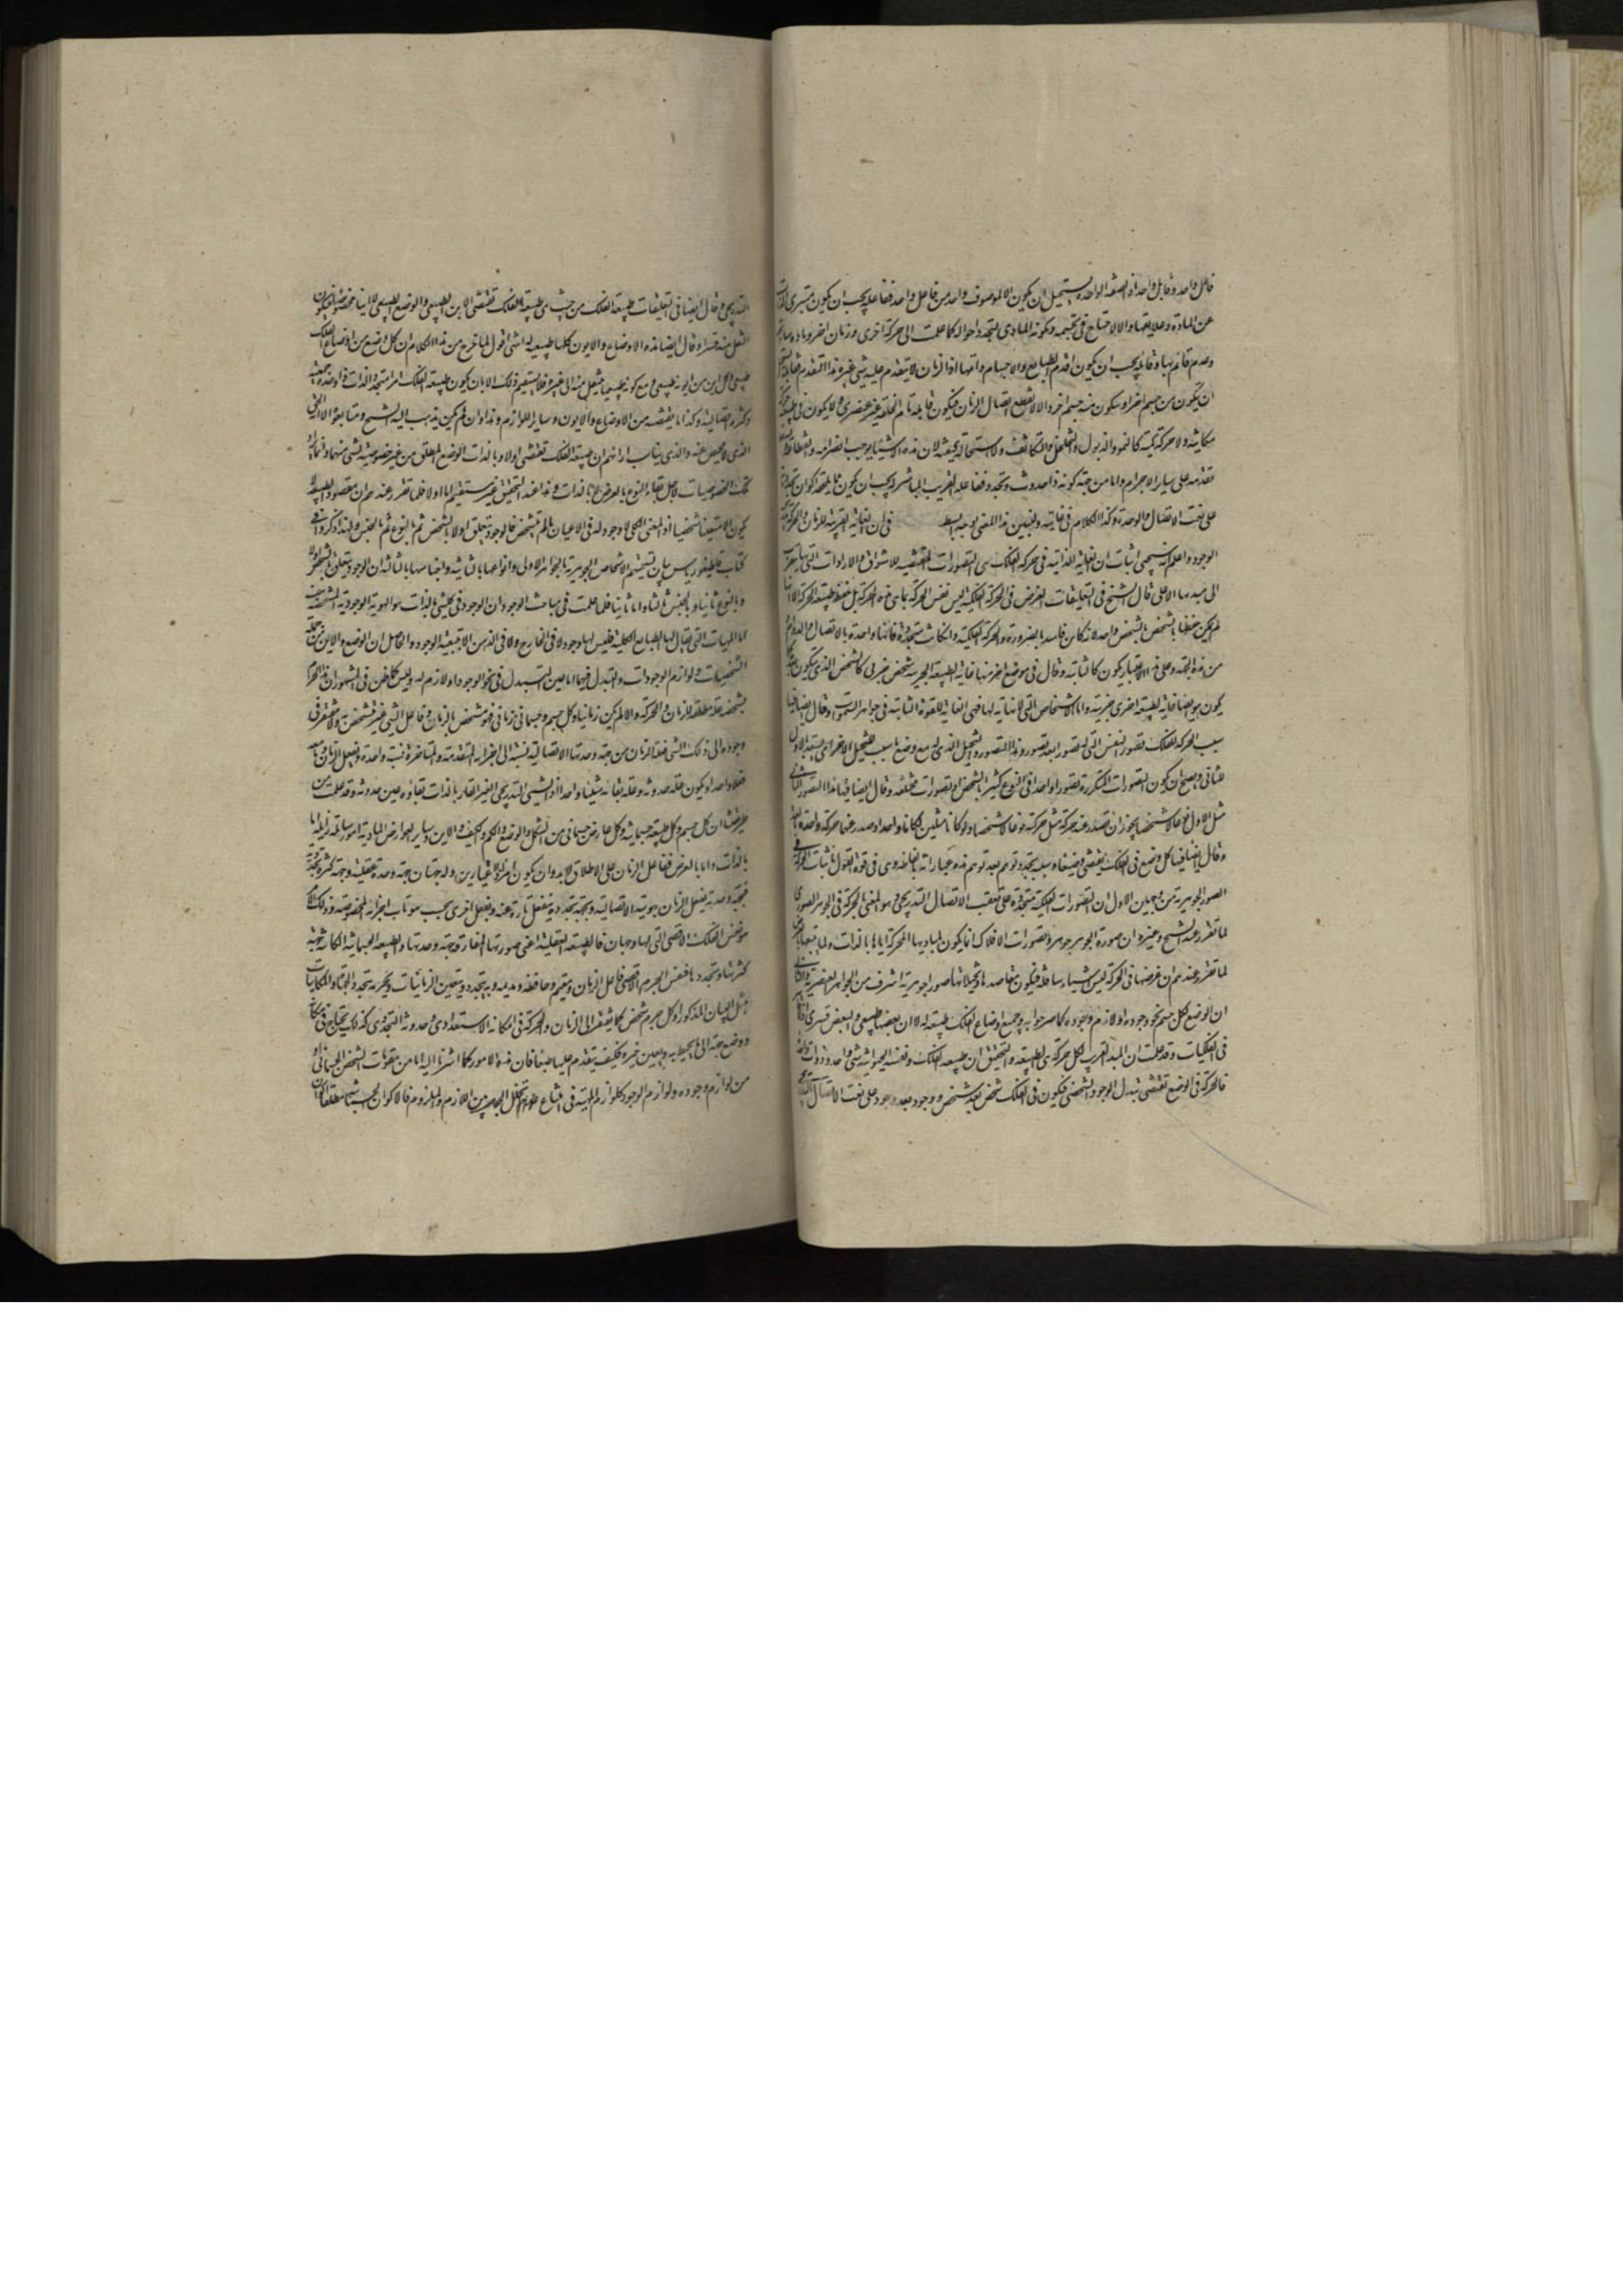 فاعل واحد وقابل واحد اذ الصفة الواحدة يستحيل ان يكون الا لموصوف واحد من فاعل واحد ففاعله يجب ان يكون متبرى الذات
عن المادة وعلايقها والا لاحتاج فى تجسمه وتكونه المادى لتجدد احواله كما علمت الى حركة اخرى وزمان اخر ومادة سابقة
وعدم قائم بها وقابله يجب ان يكون اقدم الطبايع والاجسام واتمها اذ الزمان لا يتقدم عليه شى غير هذا التقدم فقابله يستحيل
ان يتكون من جسم اخر او يتكون منه جسم اخر والا لانقطع اتصال الزمان فيكون قابله تام الخلقة غير عنصرى ولا يكون فى طبيعته حركة
مكانية ولا حركة كمية كالنمو والذبول والتخلخل والتكاثف ولا استحالة كيفية لان هذه الاشيا يوجب انصرامه وانقطاعه
تقدمه على ساير الاجرام واما من جهة كونه ذا حدوث وتجدد ففاعله القريب المباشر له يجب ان يكون مما يلحقه اكوان تجددية
على نعت الاتصال والوحدة وكذا الكلام فى غايته ولنبين هذا المعنى بوجه ابسط فى ان الغاية القريبة للزمان والحركة تدريجية
الوجود واعلم انه سيجى اثبات ان الغاية الذاتية فى حركة الفلك هى التصورات المقتضيه للاشواق والارادات التى بها يتقرب
الى مبدئها الاعلى قال الشيخ فى التعليقات الغرض فى الحركة الفلكية ليس نفس الحركة بما هى هذه الحركة بل حفظ طبيعة الحركة الا انها
لم يكن حفظها بالشخص الشخص واحد لانه كاين فاسد بالضرورة والحركة الفلكية وان كانت متجددة فانها واحدة بالاتصال والدوام
من هذه الجهة وعلى هذا الاعتبار يكون كالثابتة وقال فى موضع اخر منها غاية الطبيعة الجزئية شخص جزئى كالشخص الذى يتكون بعده
يكون هو ايضا غاية لطبيعة اخرى جزئية واما الاشخاص التى لا نهاية لها فهى الغاية للقوة الثابتة فى جواهر السموات وقال ايضا فيها
سبب الحركة للفلك تصور النفس التى له تصورا بعد تصور وهذا التصور والتخيل الذى له مع وضع ما سبب للتخيل الاخر اى يستعد بالاول
للثانى ويصح ان يكون التصورات المتكررة تصورا واحدا فى النوع كثيرا بالشخص او تصورات مختلفه وقال ايضا فيها هذا التصور الثانى
مثل الاول نوعا لا شخصا يجوز ان تصدر عنه حركة مثل حركة نوعا لا شخصا ولو كانا مثلين لكانا واحدا وصدر عنها حركة واحدة بعينها
وقال ايضا فيها كل وضع فى الفلك يقتضى وضعا وسببه تجدد توهم بعد توهم هذه عباراته بالفاظه وهى فى قوة القول باثبات الحركة فى
الصورة الجوهرية من وجهين الاول ان التصورات الفلكية متجددة على تعقب الاتصال التدريجى وهو المعنى بالحركة فى الجوهر الصورى
لما تقرر عند الشيخ وغيره ان صورة الجوهر جوهر وتصورات الافلاك انما يكون لمباديها المحركة اياها بالذات ولما تتبعها بالعرض
لما تقرر عندهم ان غرضها فى الحركة ليس اشياء سافلة فيكون مقاصدها وتخيلاتها صورا جوهرية اشرف من الجواهر العنصرية والثانى
ان الوضع لكل جسم نحو وجوده او لازم وجوده كما صرحوا به وجميع اوضاع الفلك طبيعته له لا ان بعضها طبيعى والبعض قسرى اذ لا قاسر
فى الفلكيات وقد علمت ان المبدا القريب لكل حركة هى الطبيعة والتحقيق ان طبيعة الفلك ونفسه الحيوانية شى واحد وذات واحدة
فالحركة فى الوضع تقتضى تبدل الوجود الشخصى فيكون فى الفلك شخص بعد شخص ووجود بعد وجود على نعت الاتصال التدريجى
التدريجى وقال ايضا فى التعليقات طبيعة الفلك من حيث هى طبيعة الفلك تقتضى الاين الطبيعى والوضع الطبيعى لا اينا مخصوصا فيكون
النقل منه قسرا وقال ايضا هذه الاوضاع والايون كلها طبيعية له انتهى اقول لما خرج من هذا الكلام ان كل وضع من اوضاع الفلك
طبيعى وكل اين من ايونه طبيعى ومع كونه طبيعيا ينتقل منه الى غيره فلا يستقيم ذلك الا بان يكون طبيعة الفلك امرا متجدد الذات ذا وحدة جمعية
وكثرة اتصالية وكذا ما يقتضيه من الاوضاع والايون وساير اللوازم وهذا وان لم يكن يذهب اليه الشيخ ومتابعوه الا انه الحق
الذى لا محيص عنه والذى يناسب اراءهم ان طبيعة الفلك تقتضى اولا وبالذات الوضع المطلق من غير خصوصية لشى منها وانما يراد
تلك الخصوصيات لاجل بقاء النوع بالعرض لا بالذات وهذا عند التحقيق غير مستقيم اما اولا فلما تقرر عندهم ان مقصود الطبيعة لا
يكون الا متعينا شخصيا اذ المعنى الكلى لا وجود له فى الاعيان ما لم يتشخص فالوجود يتعلق اولا بالشخص ثم بالنوع ثم بالجنس ولهذا ذكروا فى
كتاب قاطيغورياس بان تسميتهم الاشخاص الجوهرية بالجواهر الاولى وانواعها بالثانية واجناسها بالثالثة ان الوجود يتعلق بالشخص اولا
وبالنوع ثانيا وبالجنس ثالثا واما ثانيا فلما علمت فى مباحث الوجود ان الموجود فى كل شى بالذات هو الهوية الوجودية المتشخصة بنفسها
اما الماهيات التى يقال لها الطبايع الكلية فليس لها وجود لا فى الخارج ولا فى الذهن الا بتبعية الوجود والحاصل ان الوضع والاين من جملة
المشخصات ولوازم الوجودات والتبدل فيهما اما عين التبدل فى نحو الوجود او لازم له وليس كما ظن فى المشهور ان هذا الجزء
بشخصه علة مطلقة للزمان والحركة والا لم يكن زمانيا وكل جسم وجسمانى زمانى فهو متشخص بالزمان وفاعل الشى غير متشخص به ولا مفتقر فى
وجوده الى ذلك الشى فعلة الزمان من جهة وحدتها الاتصالية نسبته الى اجزائه المتقدمة والمتاخرة نسبة واحدة ويفعل الزمان وما معه
فعلا واحدا ويكون علة حدوثه وعلة بقائه شيئا واحدا اذ الشى التدريجى الغير القار بالذات بقاؤه عين حدوثه وقد علمت من
طريقتنا ان كل جسم وكل طبيعة جسمانية وكل عارض جسمانى من الشكل والوضع والكم والكيف والاين وساير العوارض المادية امور سايلة زايلة اما
بالذات واما بالعرض ففاعل الزمان على الاطلاق لابد وان يكون امرا ذا اعتبارين وله جهتان جهة وحدة عقلية وجهة كثرة تجددية
فبجهة وحدته يفعل الزمان بهويته الاتصالية وبجهة تجدده ينفعل تارة عنه ويفعل اخرى بحسب هويات اجزائه المخصوصة وذلك الامر
هو نفس الفلك الاقصى التى لها وجهان فالطبيعة العقلية اعنى صورتها المفارقة جهة وحدتها والطبيعة الجسمانية الكائنة جهة
كثرتها وتجددها فنفس الجرم الاقصى فاعل الزمان ومقيم وحافظه ومديمه وبه يتجدد ويتعين الزمانيات وبجرمه يتحدد الجهات والمكانيات
بمثل البيان المذكور اذ كل جرم شخص كما يفتقر الى الزمان والحركة فى امكانه الاستعدادى وحدوثه التجددى كذلك يحتاج فى مكانه
ووضع جهته الى ما يحيط به ويعين حيزه فكيف يتقدم عليها طبعا فان هذه الامور كما اشرنا اليه اما من مقومات الشخص الجسمانى او
من لوازم وجوده ولوازم الوجود كلوازم الماهية فى امتناع تخلل الجعل بين اللازم والملزوم فالاكوان الجسمانية مطلقا